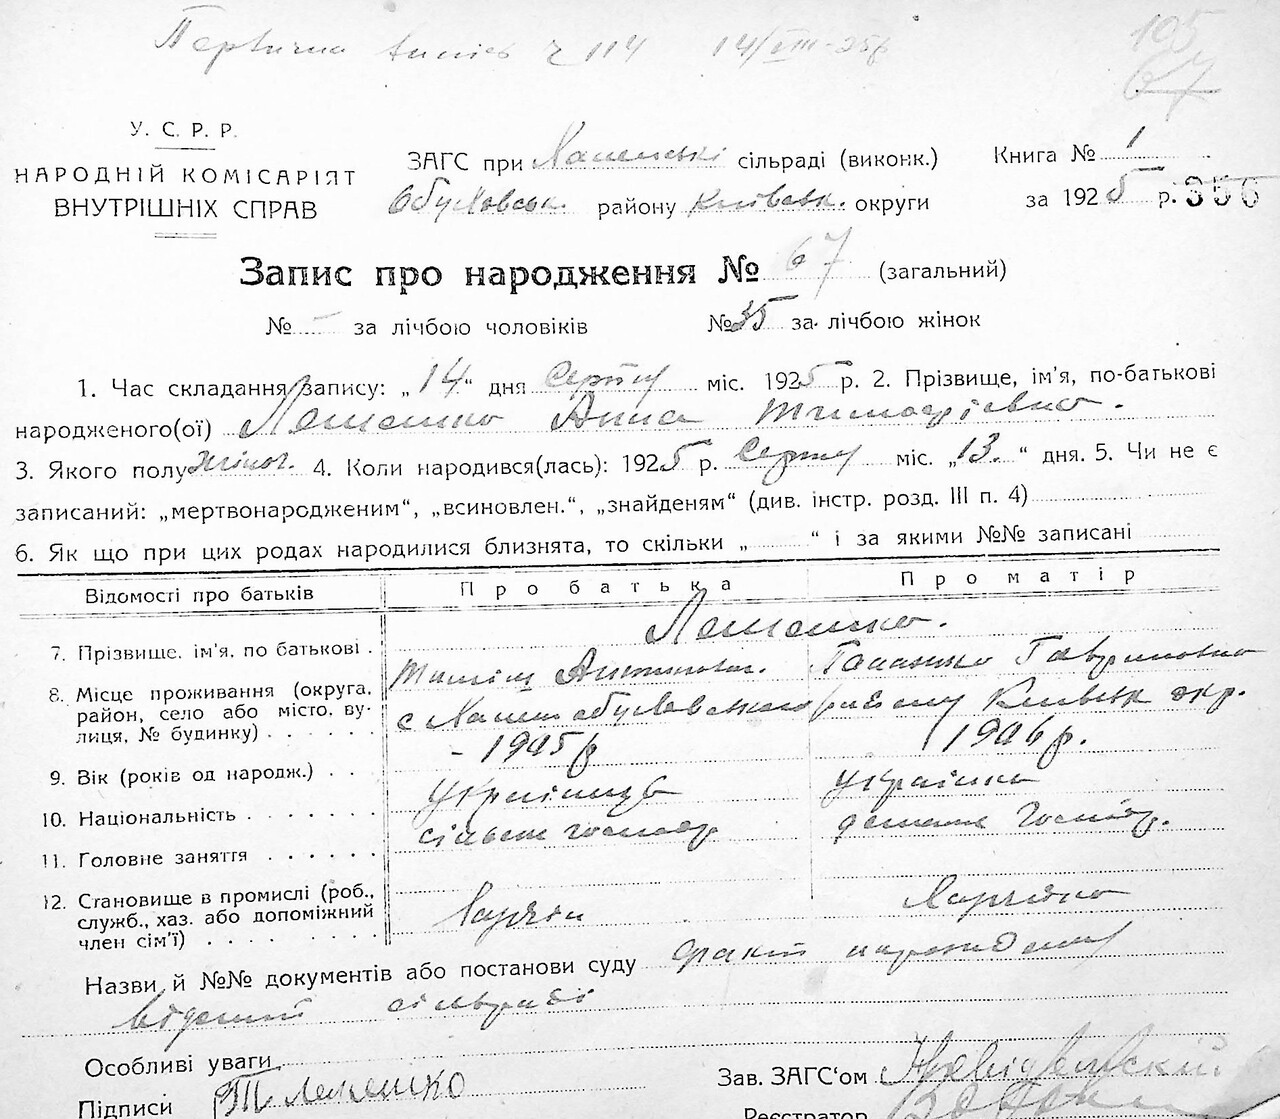 ч 114 14/VIII-25р
105
67
У. С. Р. Р.
НАРОДНІЙ КОМІСАРІЯТ
ВНУТРІШНІХ СПРАВ
ЗАГС при сільраді (виконк.)
Обуховськ. району Київськ. округи
Книга № 1
за 1925 р. 356
Запис про народження № 67 (загальний)
№ – за лічбою чоловіків №35 за лічбою жінок
1. Час складання запису: „14“ дня Серпня міс. 1925 р. 2. Прізвище, ім'я, по-батькові
народженого(ої) Лемешко Ганна Тимофіївна.
3. Якого полу жіноч. 4. Коли народився(лась): 1925 р. Серпня міс. „13.“ дня. 5. Чи не є
записаний: „мертвонародженим“, „всиновлен.“, „знайденям“ (див. інстр. розд. III п. 4)
6. Як що при цих родах народилися близнята, то скільки „ “ і за якими №№ записані
Відомості про батьків Про батька Про матір
Лемешко.
7. Прізвище, ім'я, по батькові .
Гаврилівна
8. Місце проживання (округа, район, село або місто, вулиця, № будинку)
с обуховського району Київськ окр.
- 1905 р 1906 р.
9. Вік (років од народж.) . .
українець українка
10. Національність
сільськ господ домашн господ.
11. Головне заняття
12. Становище в промислі (роб., служб., хаз. або допоміжний член сім'ї)
Назви й №№ документів або постанови суду факт народження
відомий сільраді
Особливі уваги
Підписи Т Лемешко
Зав. ЗАГС'ом
Реєстратор